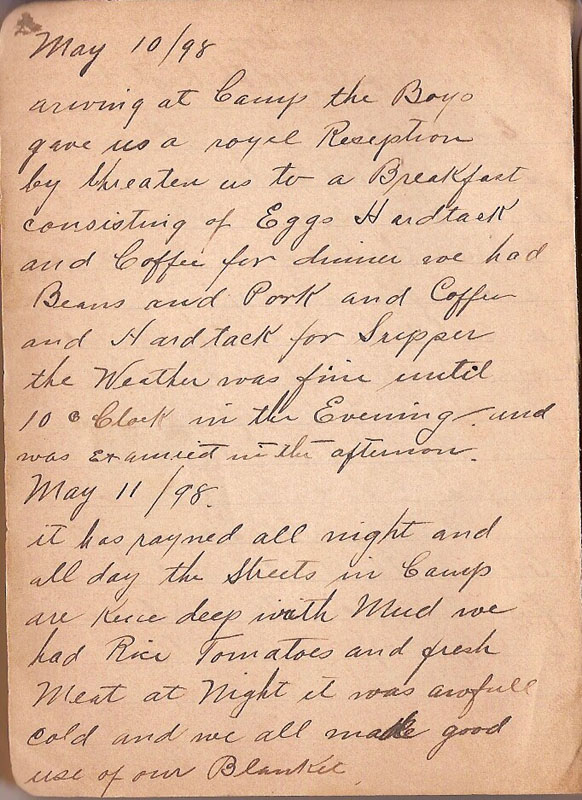 May 10/98
ariving at Camp the Boys
gave us a royel Reseption
by threaten us to a Breakfast
consisting of Eggs Hardtack
and Coffee for dinner we had
Beans and Pork and Coffee
and Hardtack for Supper
the Weather was fine until
10 o Clock in the Evening and
was examied in the afternoon.
May 11/98.
it has rayned all night and
all day the Streets in Camp
are knee deep with Mud we
had Rice Tomatoes and fresh
Meat at Night it was awfull
cold and we all made good
use of our Blanket.